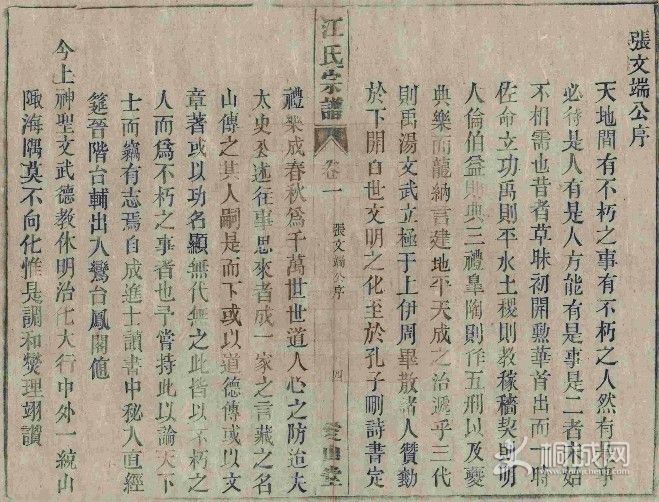 張文端公序
天地間有不朽之事有不朽之人然有是事
必待是人有是人方能有是事是二者未始
不相需也昔者草昧初開勳華首出而一時
佐命立功禹則平水土稷則教稼穡契則明
人倫伯益則典三禮皐陶則作五刑以及夔
典樂而龍納言建地平天成之治遞乎三代
則禹湯文武立極于上伊周畢散諸人贊勷
於下開百世文明之化至於孔子刪詩書定
江氏宗譜
卷一
張文端公序
四
堂
禮樂成春秋爲千萬世世道人心之防迨夫
太史公述往事思來者成一家之言藏之名
山傳之其人嗣是而下或以道德傳或以文
章著或以功名顯無代無之此皆以不朽之
人而爲不朽之事者也予嘗持此以論天下
士而竊有志焉自成進士讀書中秘入直經
筵晉階台輔出入鸞台鳳閣值
今上神聖文武德教休明治化大行中外一統山
陬海隅莫不向化惟是調和燮理翊讚
桐成网